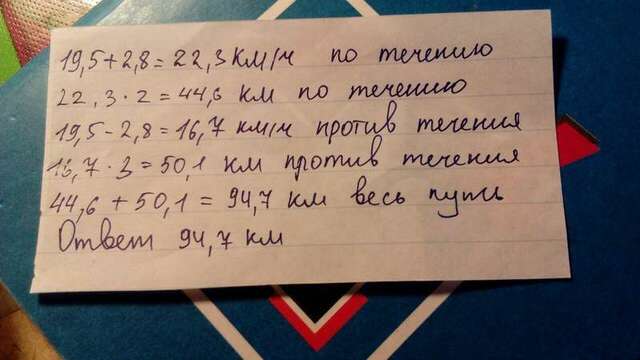 19,5+2,8=22,3 км/ч по течению
22,3·2=44,6 км по течению
19,5-2,8=16,7 км/ч против течения
16,7·3=50,1 км против течения
44,6+50,1=94,7 км весь путь
Ответ 94,7 км